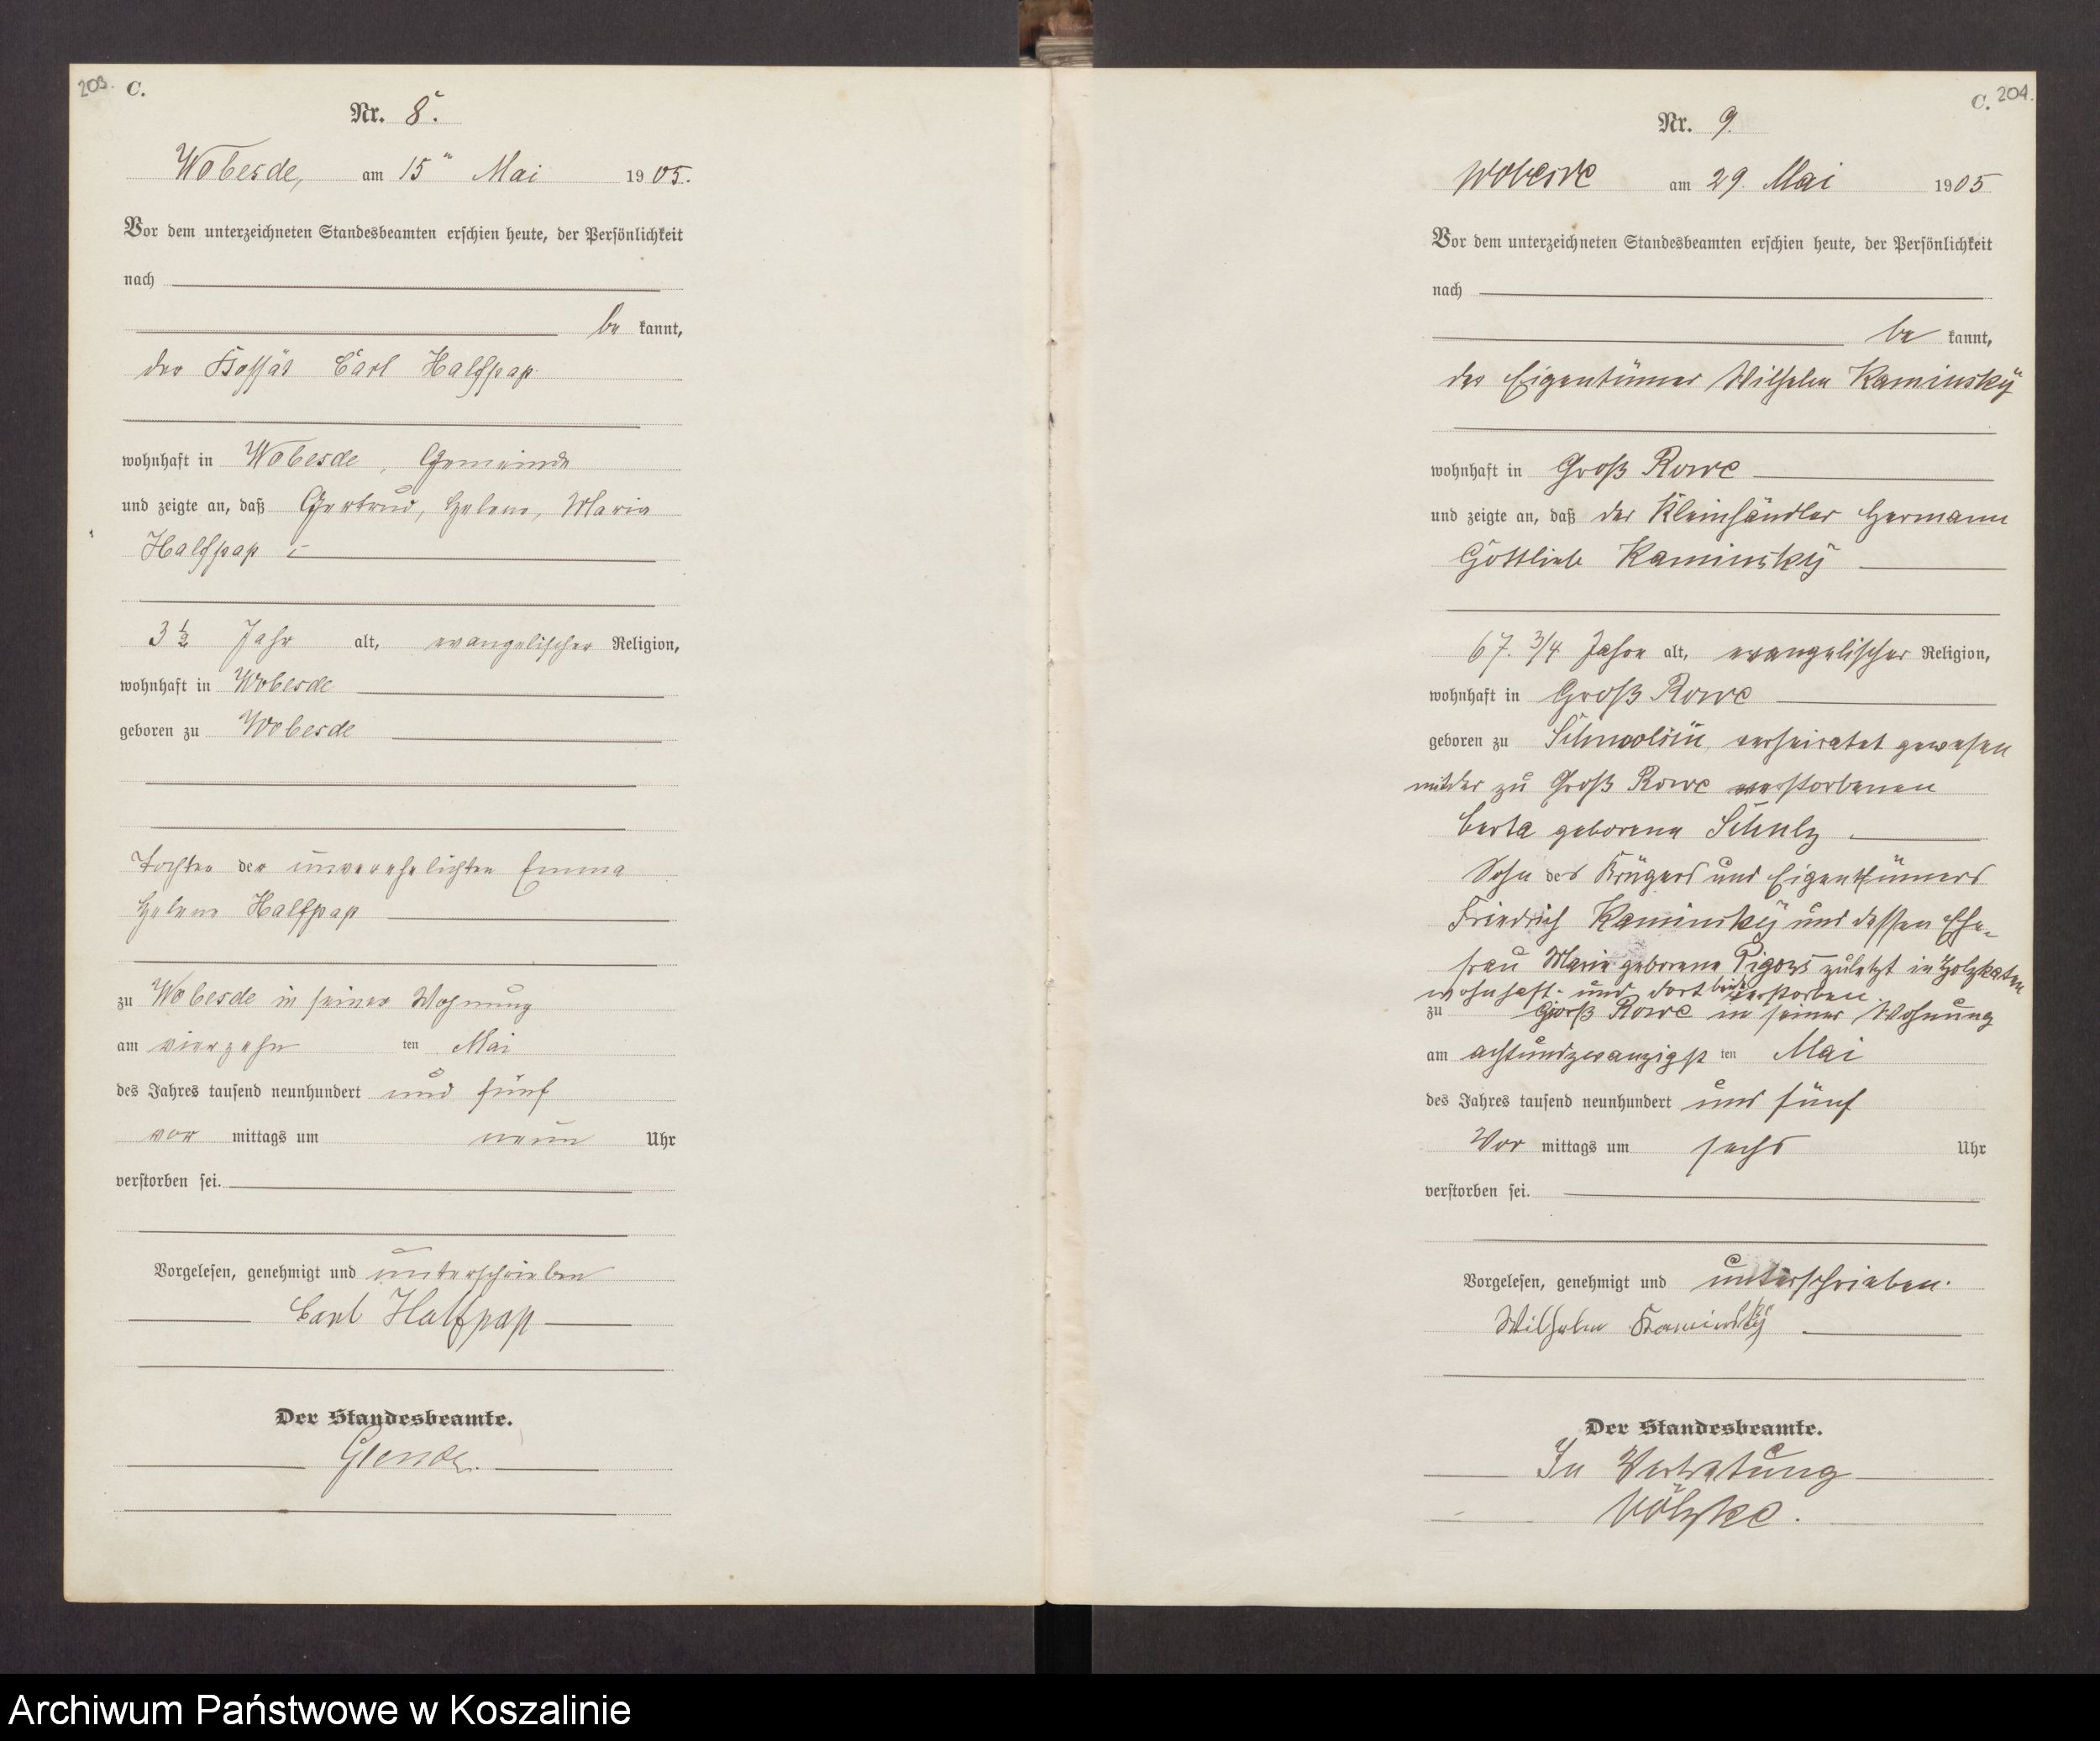 203. C.
Nr. 8.
Wobesde, am 15ten Mai 1905.
Vor dem unterzeichneten Standesbeamten erschien heute, der Persönlichkeit
nach
be kannt,
der Kossät Carl Halfpap
wohnhaft in Wobesde, Gemeinde
und zeigte an, daß Gertrud, Helene, Marie
Halfpap
3 1/2 Jahr alt, evangelischer Religion,
wohnhaft in Wobesde
geboren zu Wobesde
Tochter der unverehelichten Emma
Helene Halfpap
zu Wobesde in seiner Wohnung
am vierzehn ten Mai
des Jahres tausend neunhundert und fünf
vor mittags um neun Uhr
verstorben sei.
Vorgelesen, genehmigt und unterschrieben
Carl Halfpap
Der Standesbeamte.
C. 204.
Nr. 9.
Wobesde am 29. Mai 1905
Vor dem unterzeichneten Standesbeamten erschien heute, der Persönlichkeit
nach
be kannt,
der Eigentümer Wilhelm Kaminsky
wohnhaft in Groß Rowe
und zeigte an, daß der Kleinhändler Hermann
Gottlieb Kaminsky
67. 3/4 Jahre alt, evangelischer Religion,
wohnhaft in Groß Rowe
geboren zu Schmolsin verheiratet gewesen
mit der zu Groß Rowe verstorbenen
Berta geborene Schulz
Sohn des Krügers und Eigenthümers
Friedrich Kaminsky und dessen Ehe-
frau Marie geborene zuletzt in Holzkaten
wohnhaft und dort beide verstorben.
zu Groß Rowe in seiner Wohnung
am achtundzwanzigst ten Mai
des Jahres tausend neunhundert und fünf
Vor mittags um sechs Uhr
verstorben sei.
Vorgelesen, genehmigt und unterschrieben.
Wilhelm Kaminsky
Der Standesbeamte.
In Vertretung
Archiwum Państwowe w Koszalinie